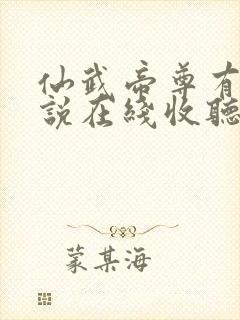 仙武帝尊有
說在綫收聽
蒙某海